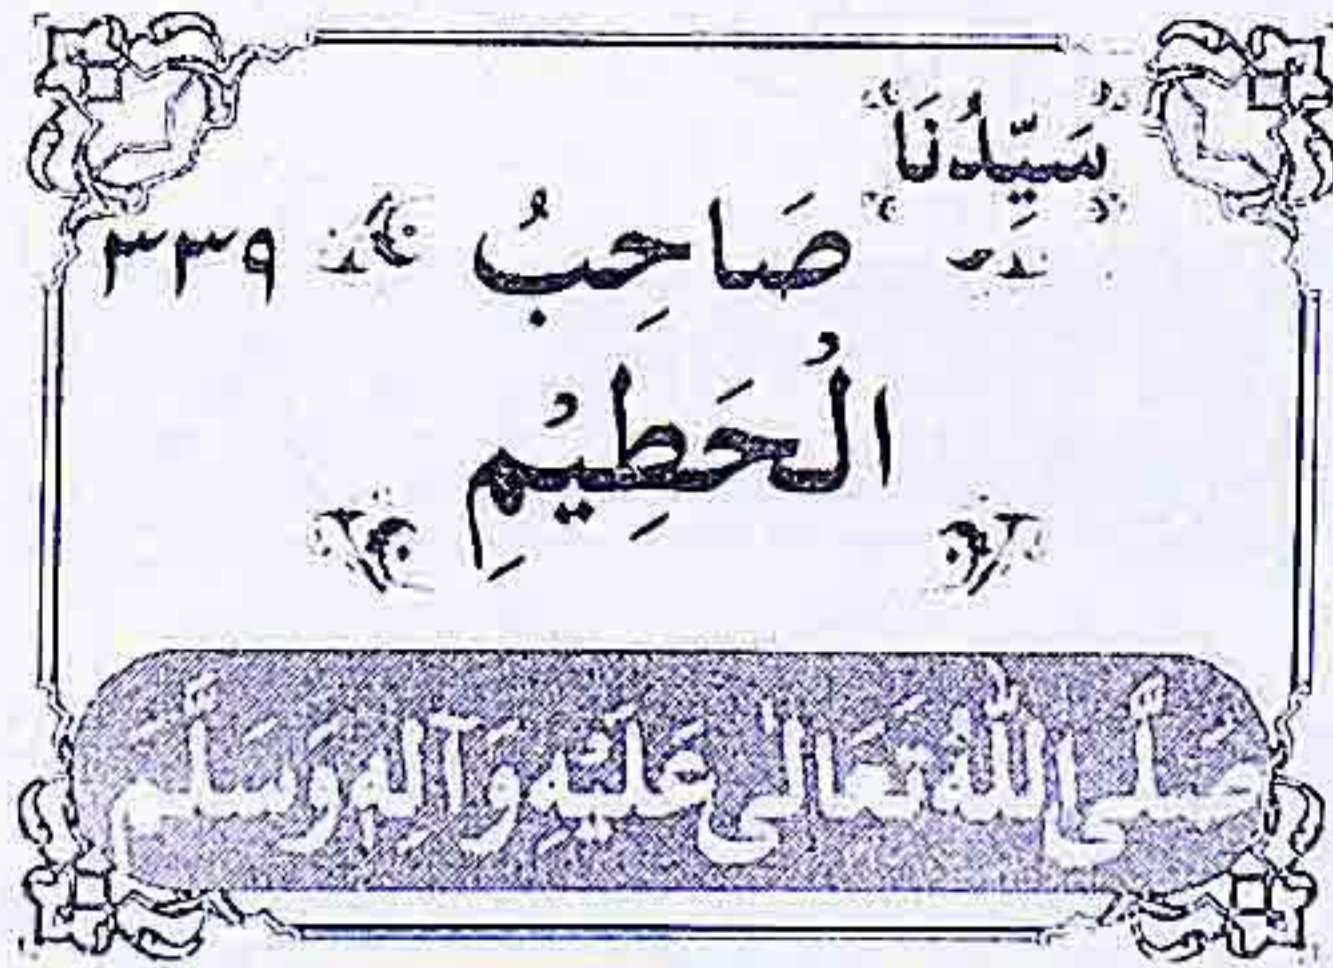 سَيِّدُنَا
صَاحِبُ ٣٣٩
الْحَطِيْمِ
صَلَّى اللّٰهُ تَعَالٰى عَلَيْهِ وَآلِهٖ وَسَلَّمَ